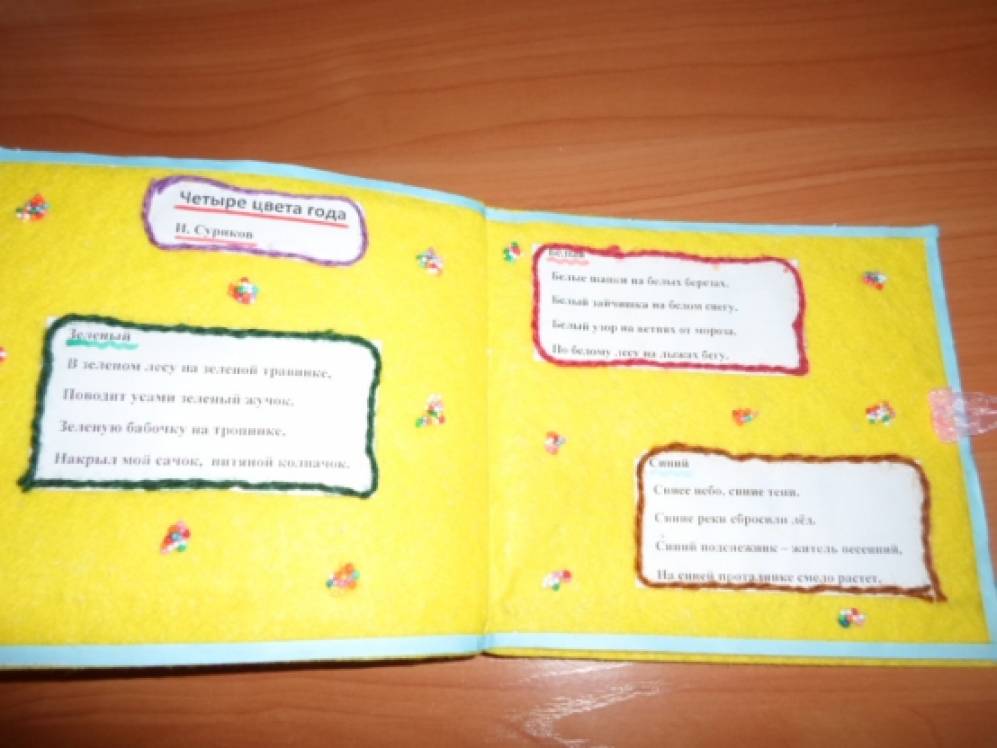 Четыре цвета года
И. Суриков
Зеленый
В зеленом лесу на зеленой травинке,
Поводит усами зеленый жучок.
Зеленую бабочку на тропинке,
Накрыл мой сачок, нитяной колпачок.
Белый
Белые шапки на белых березах.
Белый зайчишка на белом снегу.
Белый узор на ветвях от мороза.
По белому лесу на лыжах бегу.
Синий
Синее небо, синие тени.
Синие реки сбросили лёд.
Синий подснежник – житель весенний,
На синей проталинке смело растет.